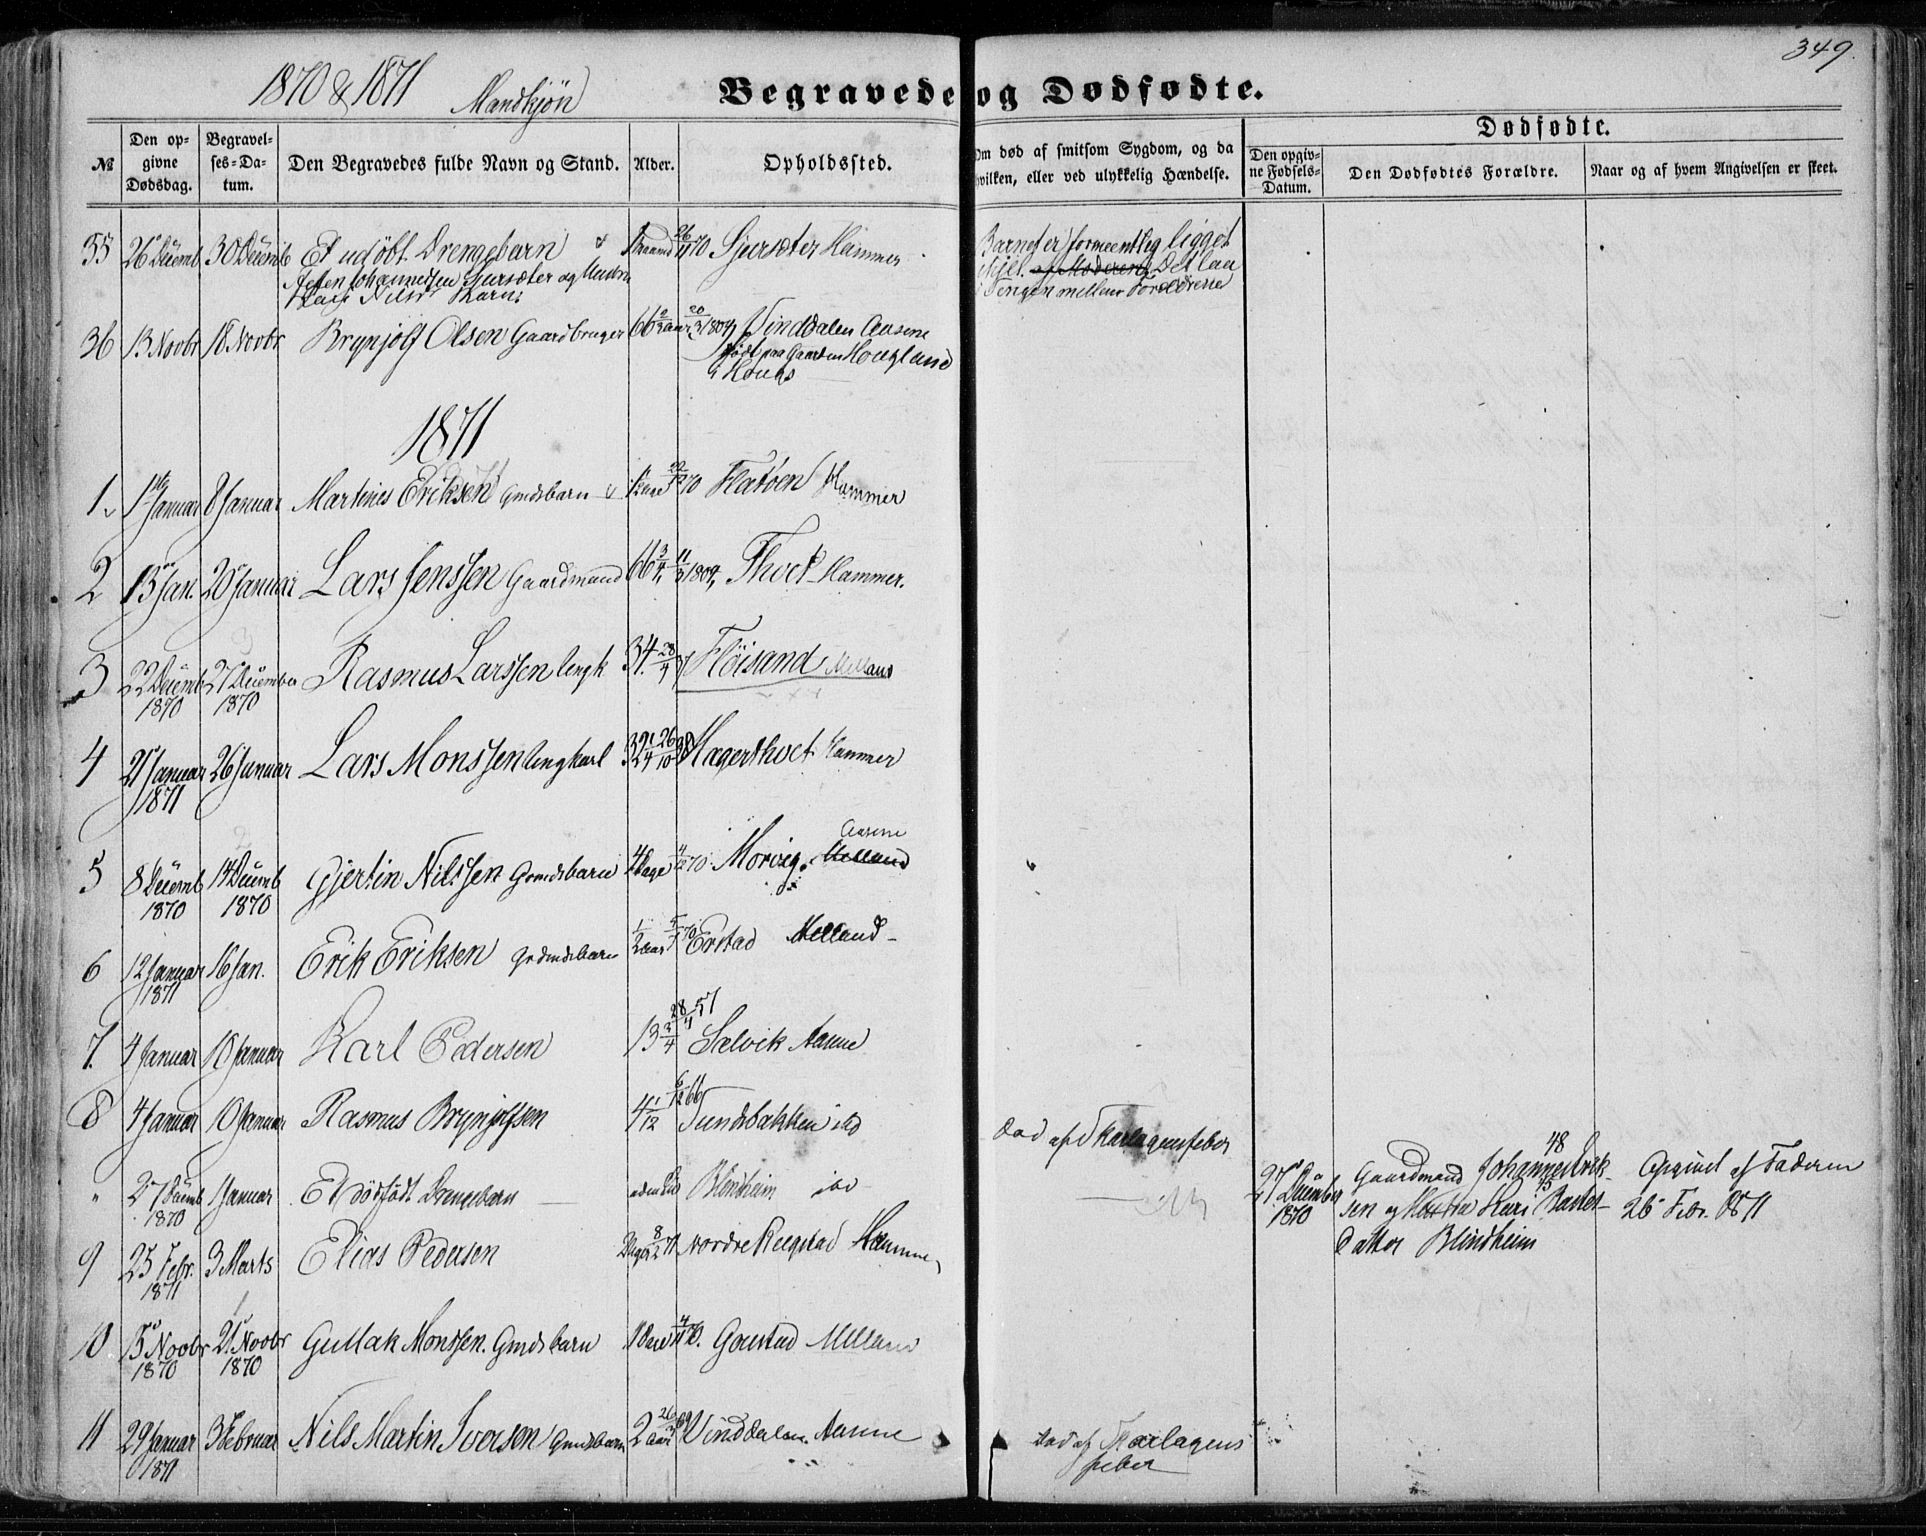 349.
1870 & 1871 Mandkjön
Begravede og Dødfødte.
Dødfødte.
№
Den opgivne Dødsdag.
Begravelses-Datum.
Den Begravedes fulde Navn og Stand.
Alder.
Opholdssted.
Om død af smitsom Sygdom, og da hvilken, eller ved ulykkelig Hændelse.
Den opgivne Fødsels-Datum.
Den Dødfødtes Forældre.
Naar og af hvem Angivelsen er skeet.
35 26 Decemb 30 Decemb Et udöbt Drengebarn 26/11 70 Sjursæter Hammer Barnet er formeentlig ligget
ihjel af Moderen Det laa
i Sengen mellem Forældrene
36 13 Novbr 18 Novbr Brynjolf Olsen Gaardbruger 66 2/3 aar 20/3 1804 Vinddalen Aasene
født paa Gaarden Hougland
i Hougs
1871
1. 1 Januar 8 Januar Martines Eriksen Gmdsbarn 22/12 70 Flatøen Hammer
2 15 Jan. 20 Januar Lars Jenssen Gaardmand 66 3/4 11/3 1804 Thvet Hammer.
3 22 Decemb 1870 27 December 1870 Rasmus Larssen Ungk 34. 28/4 Flöisand Melland
4 21 Januar 1871 26 Januar Lars Monssen Ungkarl 32 1/4 26/10 38 Hagerthvet Hammer
5 8 Decemb 1870 14 Decemb 1870 Gjertin Nilssen Gmdsbarn 4 Dage 4/12 70 Morvig. Melland Aasene
6 12 Januar 1871 16 Jan. Erik Eriksen Gmdsbarn 1/2 aar 5/7 70 Erstad Melland
7. 4 Januar 10 Januar Karl Pedersen 13 3/4 28/4 57 Sælvik Aasne
8 4 Januar 10 Januar Rasmus Brynjolfsen 4 1/12 6/12 66 Tundsbakken ibd Död af Skarlagensfeber
" 27 Decemb 1870 1 Januar Et dödfödt Drengebarn uden Liv Blindheim ibd
27 December 1870 Gaardmand Johannes Erik- 48
sen og Hustru Kari Baste- 43
datter Blindheim
Opgivet af Faderen
26 Febr. 1871
9 25 Febr. 1871 3 Marts Elias Pedersen Dage 8/2 71 nordre Reigstad Hammer
10 15 Novbr 1870 21 Novbr 1870 Gullak Monssen. Gmdsbarn 4/11 70. Gaustad Melland
11 29 Januar 1871 3 Februar Nils Martin Iversen Gmdsbarn 2 aar 26/ 69 Vinddalen. Aasne Död af Skarlagens
feber